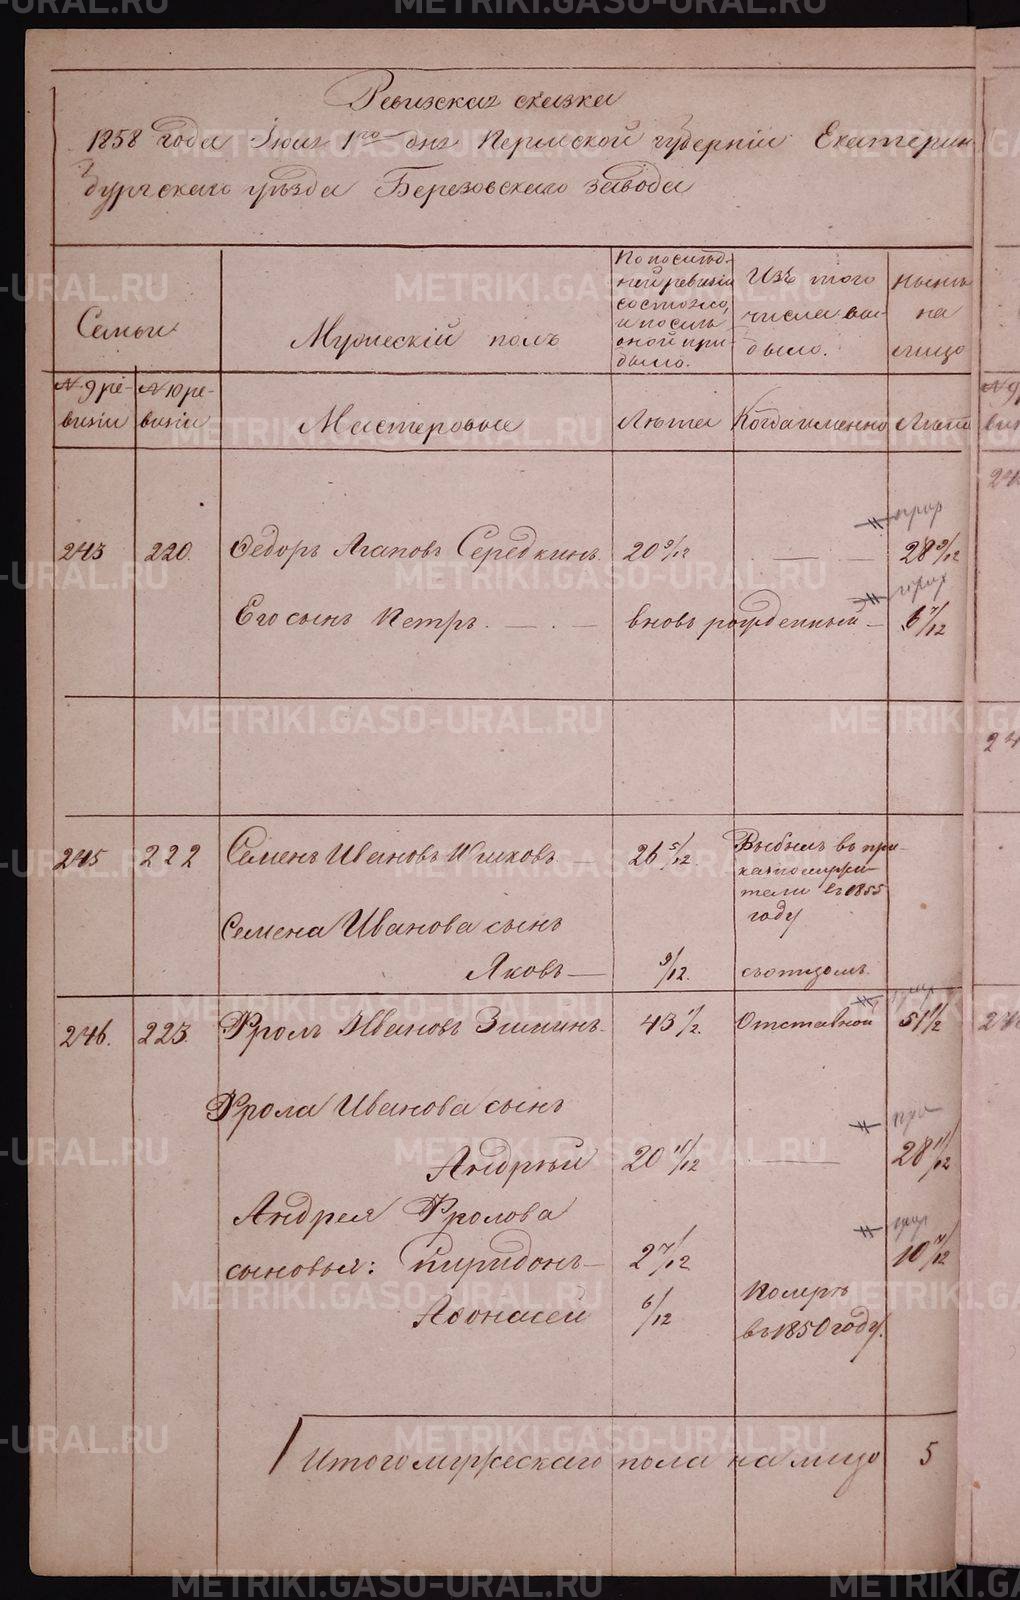 Ревизская сказка
1858 года Июля 1го дня Пермской губерніи Екатерин
бургскаго уѣзда Березовскаго завода
Семьи
Мужескій полъ
По послѣд-
ней ревизіи
состояло,
и послѣ
оной при-
было.
Изъ того
числа вы-
было.
Нынѣ
на
лицо
№ 9 ре-
визіи
№ 10 ре-
визіи
Мастеровые
Лѣта
Когда именно
Лѣта
243 220. Ѳедоръ Агаповъ Середкинъ 20 9/12 — 28 9/12
Его сынъ Петръ — вновь рожденный — 6 7/12
245 222 Семенъ Ивановъ — 26 5/12
Выбылъ въ при-
казнослужи-
тели въ 1855
году
Семена Иванова сынъ
Яковъ — 9/12. съ отцомъ.
246. 223. Фролъ Ивановъ Зиминъ 43 1/2. Отставной 51 1/2
Фрола Иванова сынъ
Андрѣй 20 11/12 — 28 11/12
Андрея Фролова
сыновья: Спиридонъ — 2 7/12 10 7/12
Афонасей 6/12
Померъ
въ 1850 году.
Итого мужескаго пола на лицо 5
METRIKI.GASO-URAL.RU